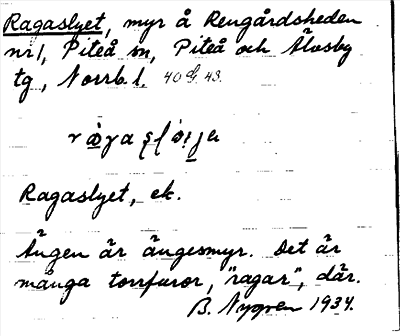 Ragaslyet, myr å Rengårdsheden
nr 1, Piteå sn, Piteå och Älvsby
tg, Norrb. l. 40 G. 43.
Ragaslyet, ek.
Ängen är ängesmyr. Det är
många torrfuror, "ragar", där.
B. Nygren 1934.